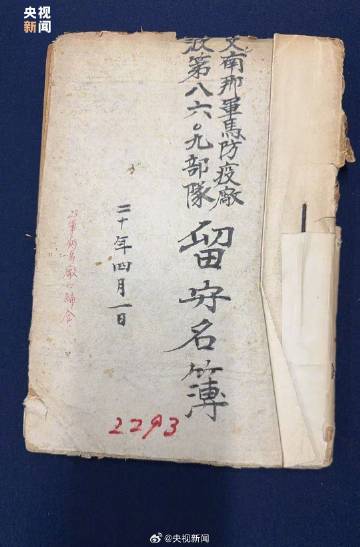 央视
新闻
支南那軍馬防疫廠
波第八六〇九部隊
留守名簿
二十年四月一日
2293
@央视新闻